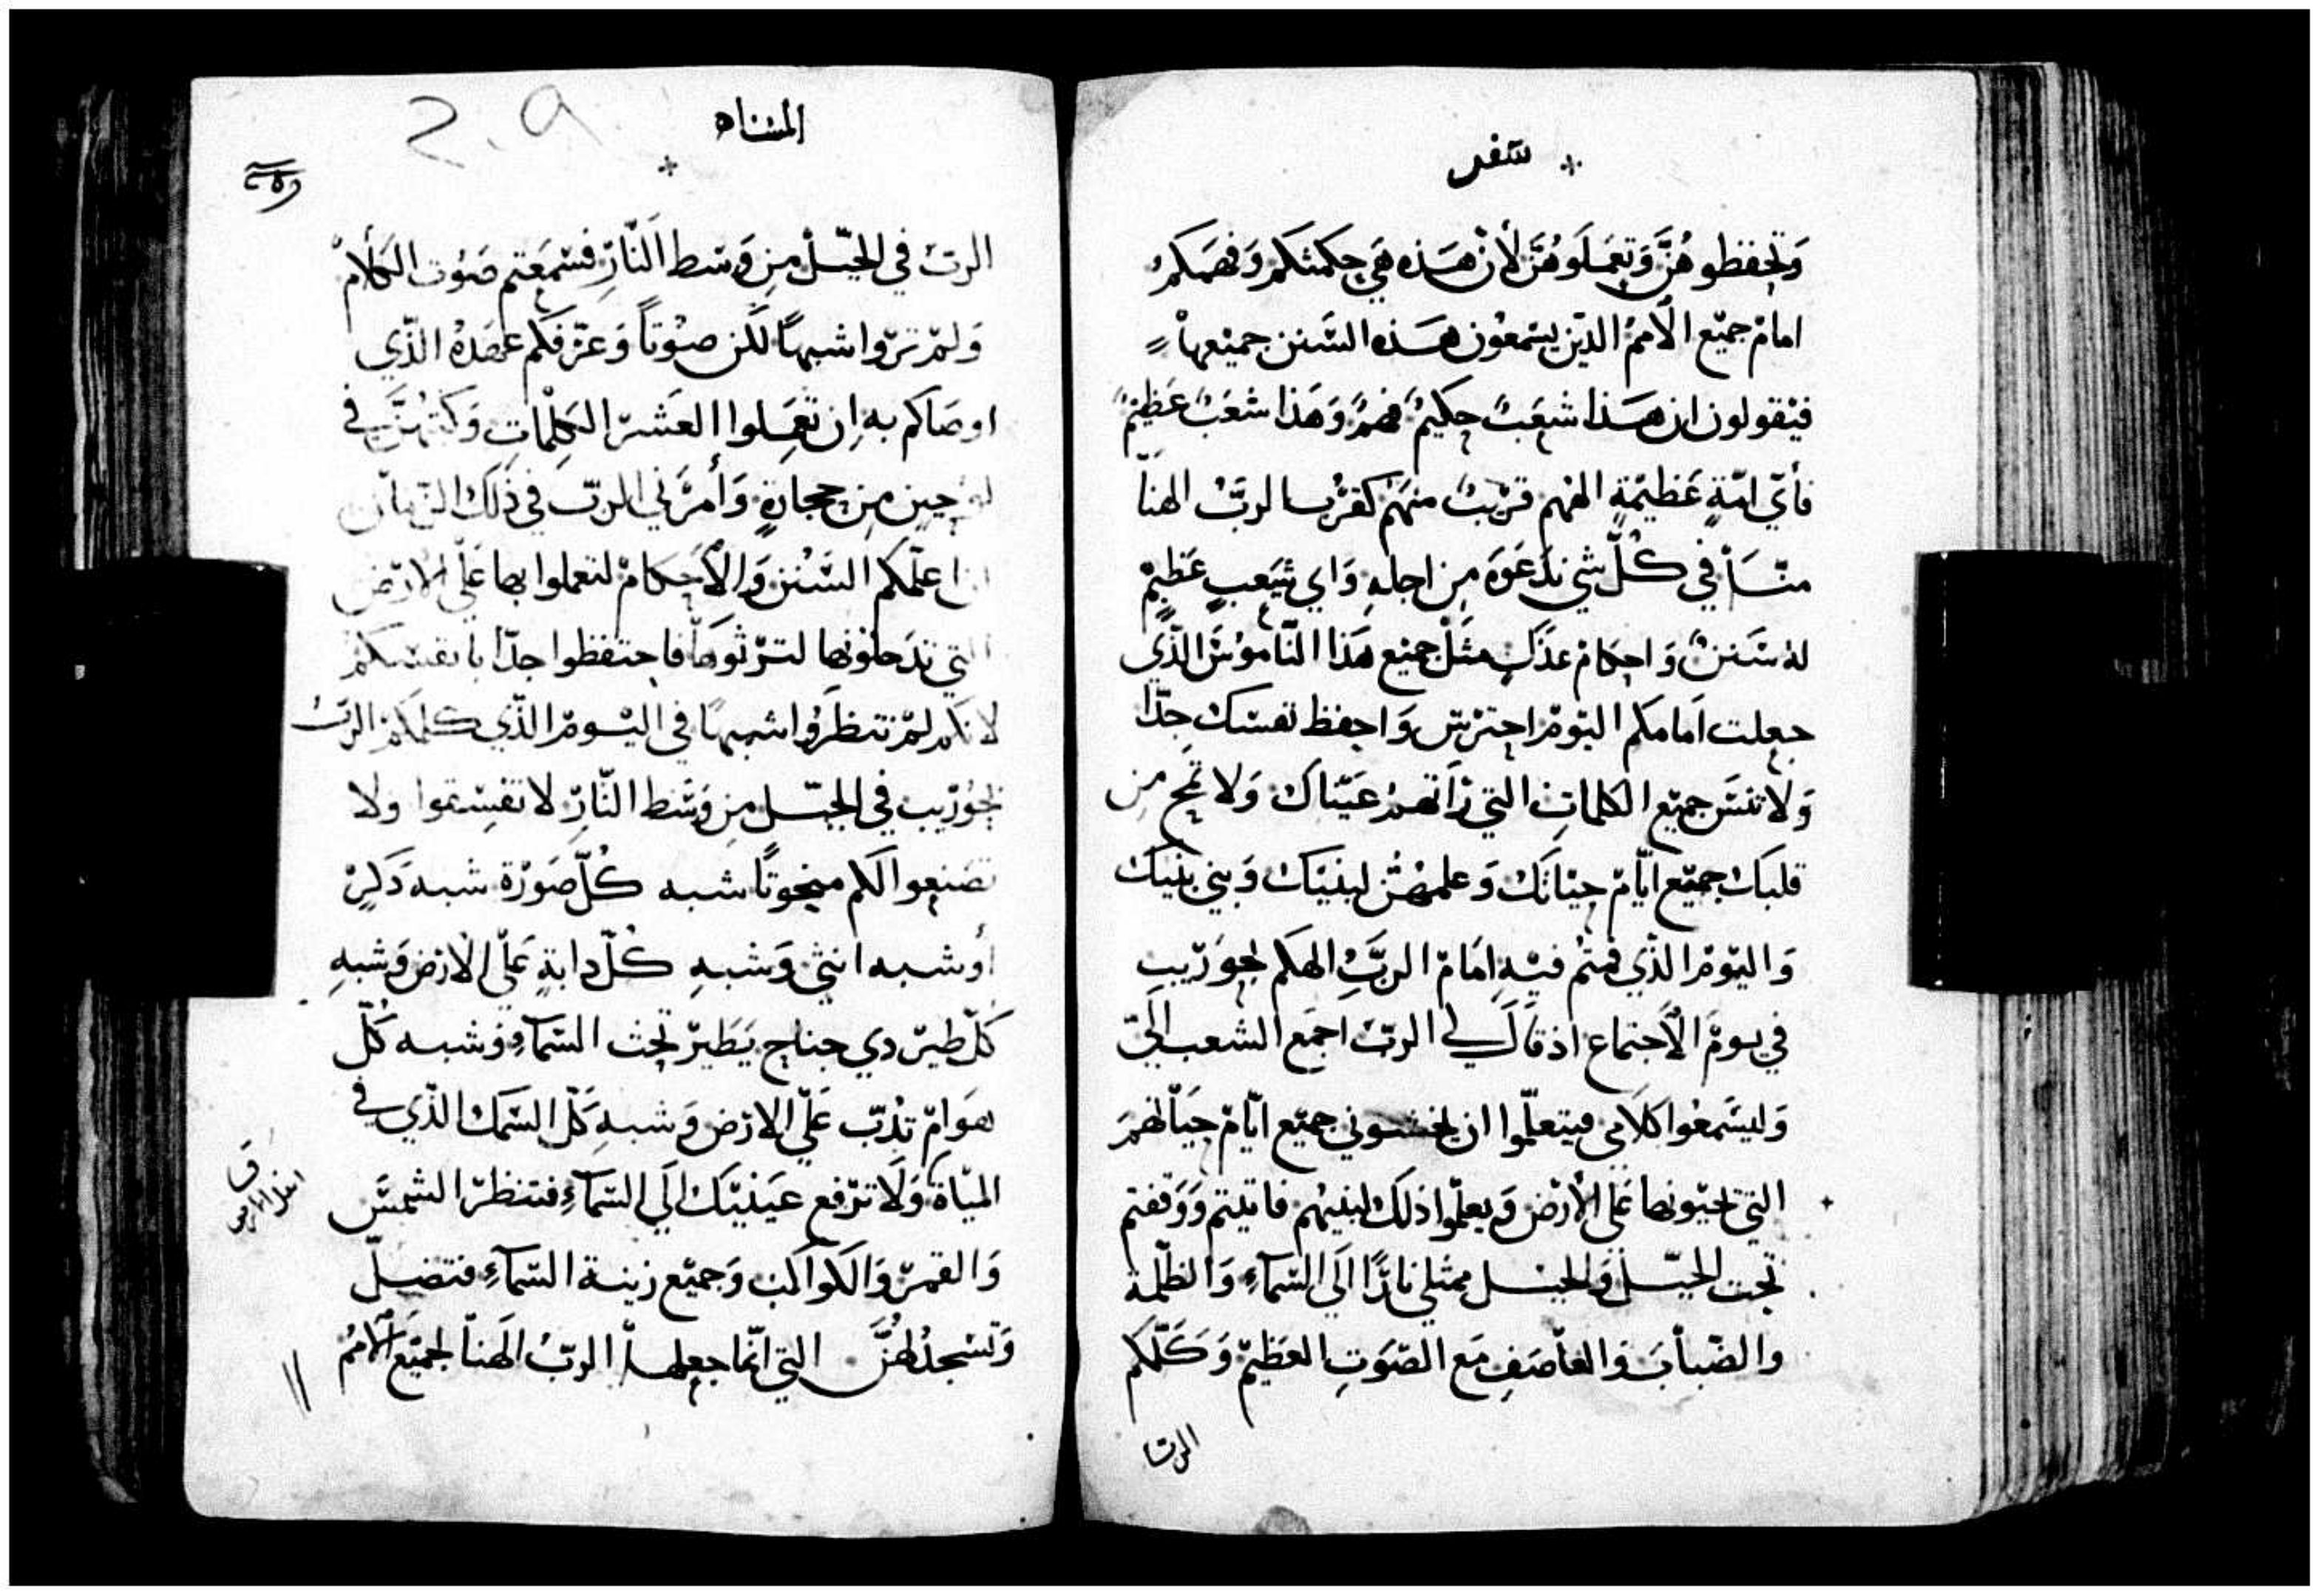 سفر
وَتحفظوهُنَّ وَتعمَلوهُنَّ لأنّ هَذه هي حكمتكم وَفهمَكم
امامَ جميْع الأممُ الذيْن يسْمعُون هَذه السَنن جميْعهاْ
فيْقولون ان هَذا شعَبٌ حكيمٌ فهمٌ وَهَذا شعَبٌ عَظيمٌ
فأيّ امّةٍ عَظيمْةٍ الههم قرْيبٌ منهَمْ كقرْب الربَّ الهناّ
منّا في كُلّ شي ندَعَوهَ من اجلهِ وَاي شَعبٍ عَظيمٌ
لهُ سَننٌ وَاحكامْ عدَلٍ مثَلْ جميْع هَذا النّاموُسَ الذّي
جعلت اَمامكم اليَوْمْ احترْسْ وَاحفظ نفسَك جدّا
وَلا تنسَ جميْع الكلماتِ التي رَاتهمْ عَيْناك وَلا تمح من
قلبَك جميْع ايّامْ حيْاتَك وَعلمهُنْ لبنيْك وَبني بنيْك
وَاليوْمْ الذّي قمتُم فيْهِ امَامْ الربَّ الهكم بحوَرْيب
في يومَ الأجتماع اذ قالَ لي الربّ اجمَع الشعب اليّ
وَليسَمعُوا كلامي فيتعلّموا ان يخشوني جميْع ايّامْ حيَاْتهمَ
التي يحيْونها عَلى الأرْض وَيعلّموا ذلك لبنيْهم فاتيتم وَوَقفتم
تحت الجبَل وَالجبل ممتلي نارًا الَي السّمآءِ وَالظلّمة
والضّبابَ وَالعاْصَفِ مَع الصّوَتِ العَظيمْ وَكَلّمكم
الربّ
المثناه
٢٠٩
الربّ في الجبّلْ من وَسَط اَلنّارِ فسْمَعتم صَوُت الكَلامْ
وَلمْ ترَوا شبهًا لكَن صوْتاً وَعرّفكم عهدَهُ الذّي
اوصَاكم بهِ ان تعَمِلوا العَشَرْ الكِلْماتِ وَكتبهُنَّ في
لوحين من حجارةٍ وَأمرَني الربّ في ذَلك الزمان
ان اعلّمكم السَنن وَالأحكامْ لتعملوا بها عَلّي الارْض
التي تدَخلوُنها لترْثوَهاّ فاحتفظوا جدّا بانفسكم
لانكم لمْ تنظَروُا شبهًا في اليْومْ الذّي كلمكَمْ الربُ
بحوُرْيب في الجبَل من وَسَط النّارِ لا تفسقوا ولا
تصَنعوا لكم منحوتًا شبه كُلّ صَوْرة شبه ذَكرٍ
أو شبه انثي وَشبهِ كُلّ دابةٍ عَلّي الأرْض وَشبهِ
كَلّ طيرْ دي جناح يَطيرْ تحت السّمآءِ وَشبه كُلّ
هوَامّ تدُبّ عَلّي الارْض وَشبهِ كَلّ السّمَك الذّي في
المَيْاة وَلَا ترْفع عيَنيْك الَي السّمآءِ فتنظرْ الشمسَ
وَالقمرْ وَالكَواكب وَجميْع زينة السّمآءِ فتضلّ
وَتسْجدْ لهُنَّ التي انّما جعلهاْ الربُ الَهناْ لجميْع الأممُ